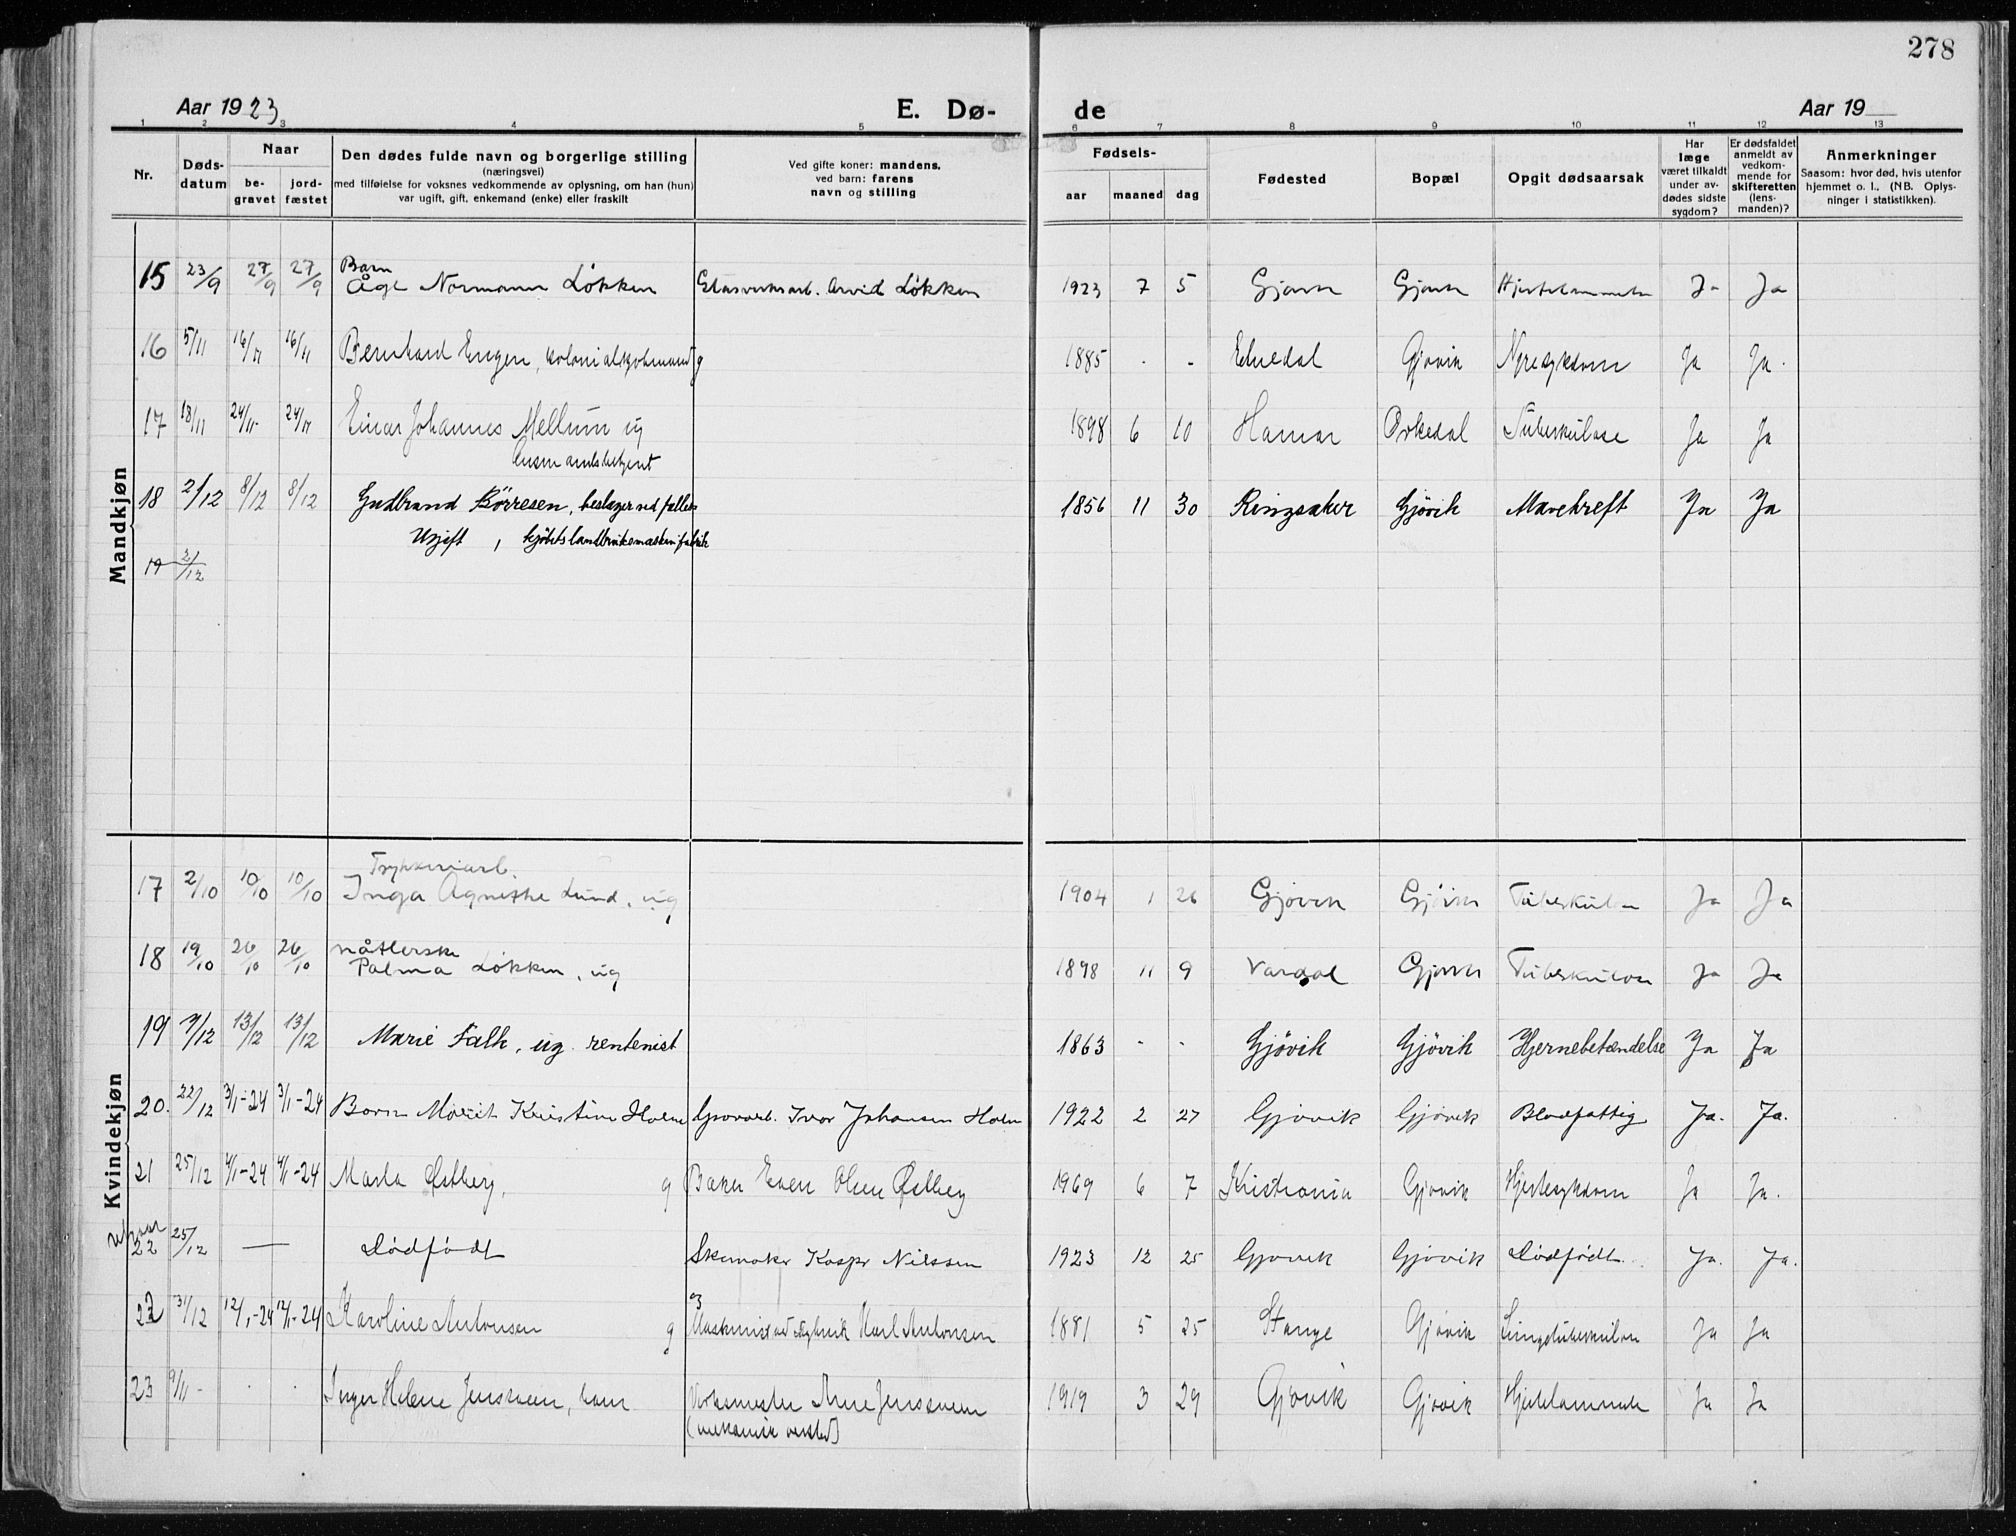 278
Aar 1923 E. Dø- de Aar 19
1 2 3 4 5 6 7 8 9 10 11 12 13
Nr. Døds-datum Naar be-gravet jord-fæstet Den dødes fulde navn og borgerlige stilling (næringsvei) med tilføielse for voksnes vedkommende av oplysning, om han (hun) var ugift, gift, enkemand (enke) eller fraskilt Ved gifte koner: mandens. ved barn: farens navn og stilling Fødsels- aar maaned dag Fødested Bopæl Opgit dødsaarsak Har læge været tilkaldt under av-dødes sidste sygdom? Er dødsfaldet anmeldt av vedkom-mende for skifteretten (lens-manden)? Anmerkninger Saasom: hvor død, hvis utenfor hjemmet o. l., (NB. Oplys-ninger i statistikken).
Mandkjøn
Barn
15 23/9 27/9 27/9 Åge Normann Løkken Glasverksarb. Arvid Løkken 1923 7 5 Gjøvik Gjøvik Hjertelammelse Ja Ja
16 5/11 16/11 16/11 Bernhard Engen, kolonialkjøbmand g 1885 - - Gjøvik Nyresykdom Ja Ja.
17 18/11 24/11 24/11 Einar Johannes Mellum ug 1898 6 10 Hamar Orkedal Tuberkulose Ja Ja
18 2/12 8/12 8/12 Gudbrand Børresen, beslager ved fælles 1856 11 30 Ringsaker Gjövik Mavekreft Ja Ja
Ugift, kjøbets landbruksmaskinfabrik
19 2/12
Kvindekjøn
17 2/10 10/10 10/10 Inga Agnethe Lund, ug 1904 1 26 Gjøvik Gjøvik Tuberkulose Ja Ja
18 19/10 26/10 26/10 Palma Løkken, ug 1898 11 9 Vardal Gjøvik Tuberkulose Ja Ja
19 7/12 13/12 13/12 Marie Falk, ug. rentenist 1863 - - Gjövik Gjövik Hjernebetændelse Ja Ja
20. 22/12 3/1-24 3/1-24 Barn Marit Kristine Holm Grovarb. Ivar Johansen Holm 1922 2 27 Gjøvik Gjøvik Blodfattig Ja. Ja.
21 25/12 4/1-24 4/1-24 Marta Østberg, g Baker Even Olsen Østberg 1969 6 7 Kristiania Gjøvik Hjertesykdom Ja Ja.
22 25/12 — Dödfödt Skomaker Kaspr Nilssen 1923 12 25 Gjøvik Gjøvik Dödfödt Ja. Ja.
22 31/12 12/1-24 12/1-24 Karoline Antonsen g Maskinist Karl Antonsen 1881 5 25 Stange Gjøvik Lungetuberkulose Ja Ja
23 9/11 - Inger Helene Jensveen, barn Verksmester Arne Jensveen 1919 3 29 Gjøvik Gjøvik Hjertelammelse Ja Ja
(mekanisk verksted)